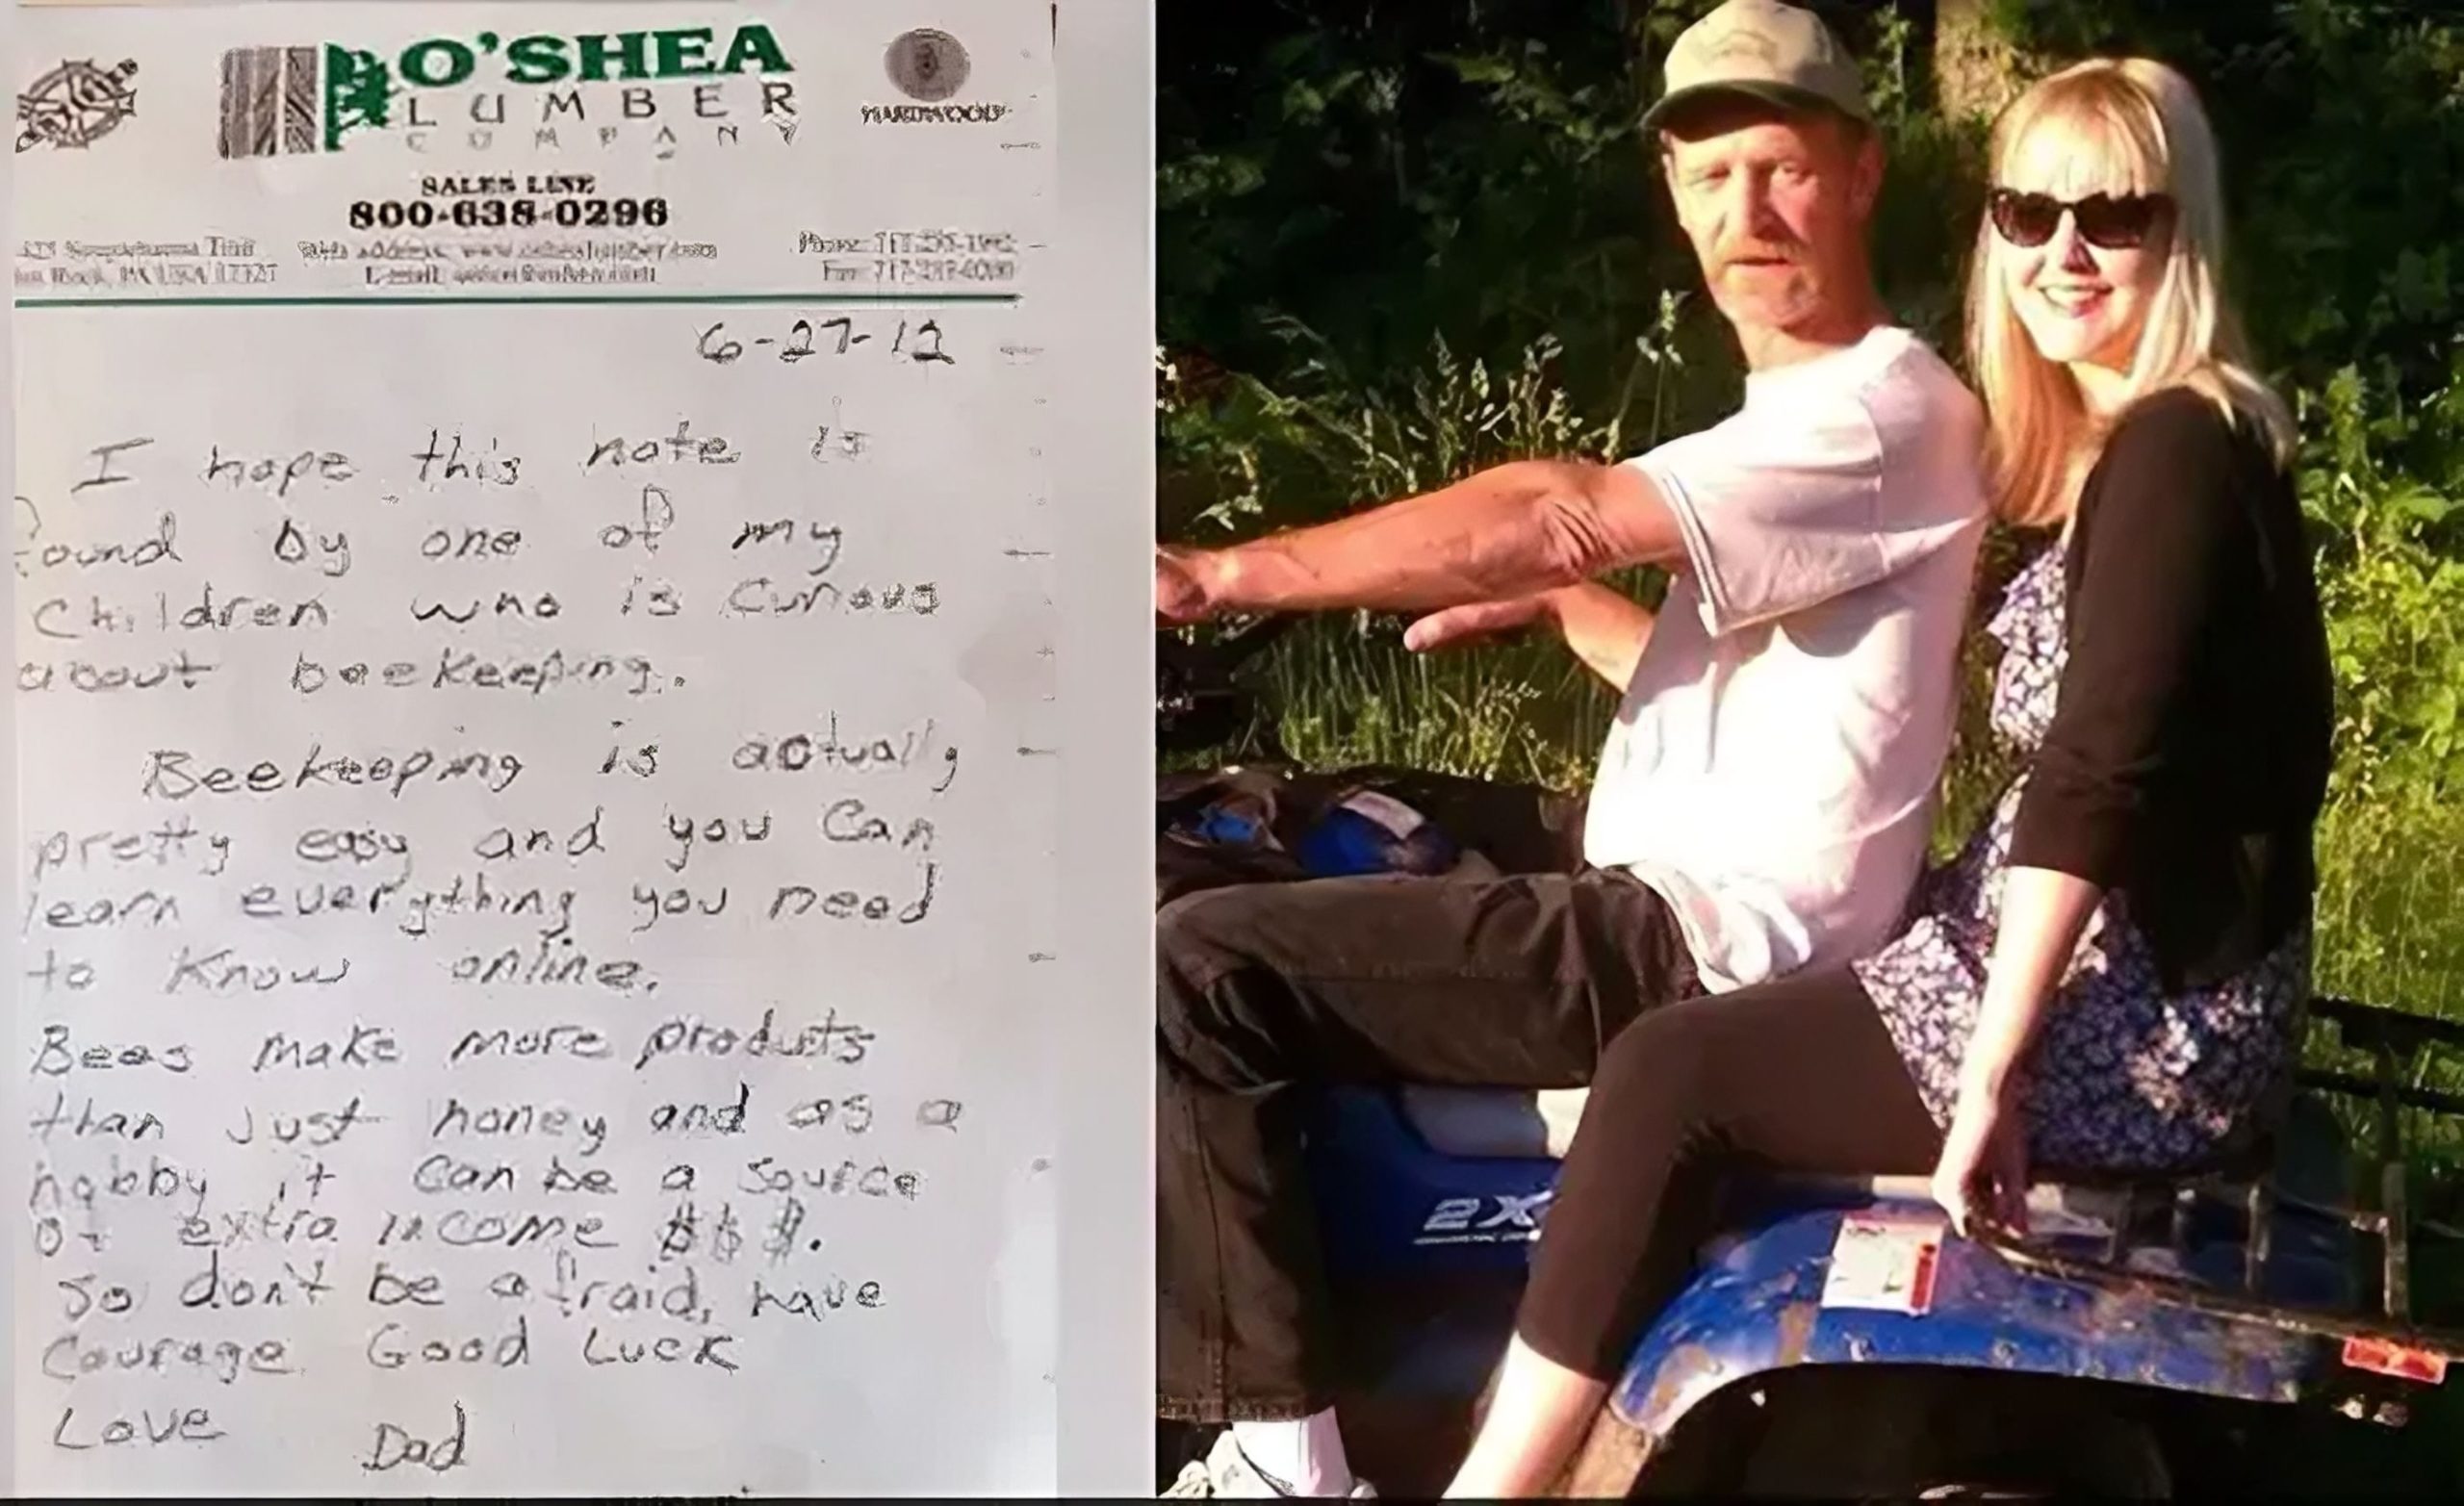 O'SHEA
LUMBER
COMPANY
SALES LINE
800-638-0296
6-27-12
I hope this note is
found by one of my
Children who is Curious
about beekeeping.
Beekeeping is actually
pretty easy and you Can
learn everything you need
to Know online.
Bees make more products
than Just honey and as a
hobby it Can be a source
of extra income $$$.
So don't be afraid, have
Courage Good Luck
Love Dad
2X